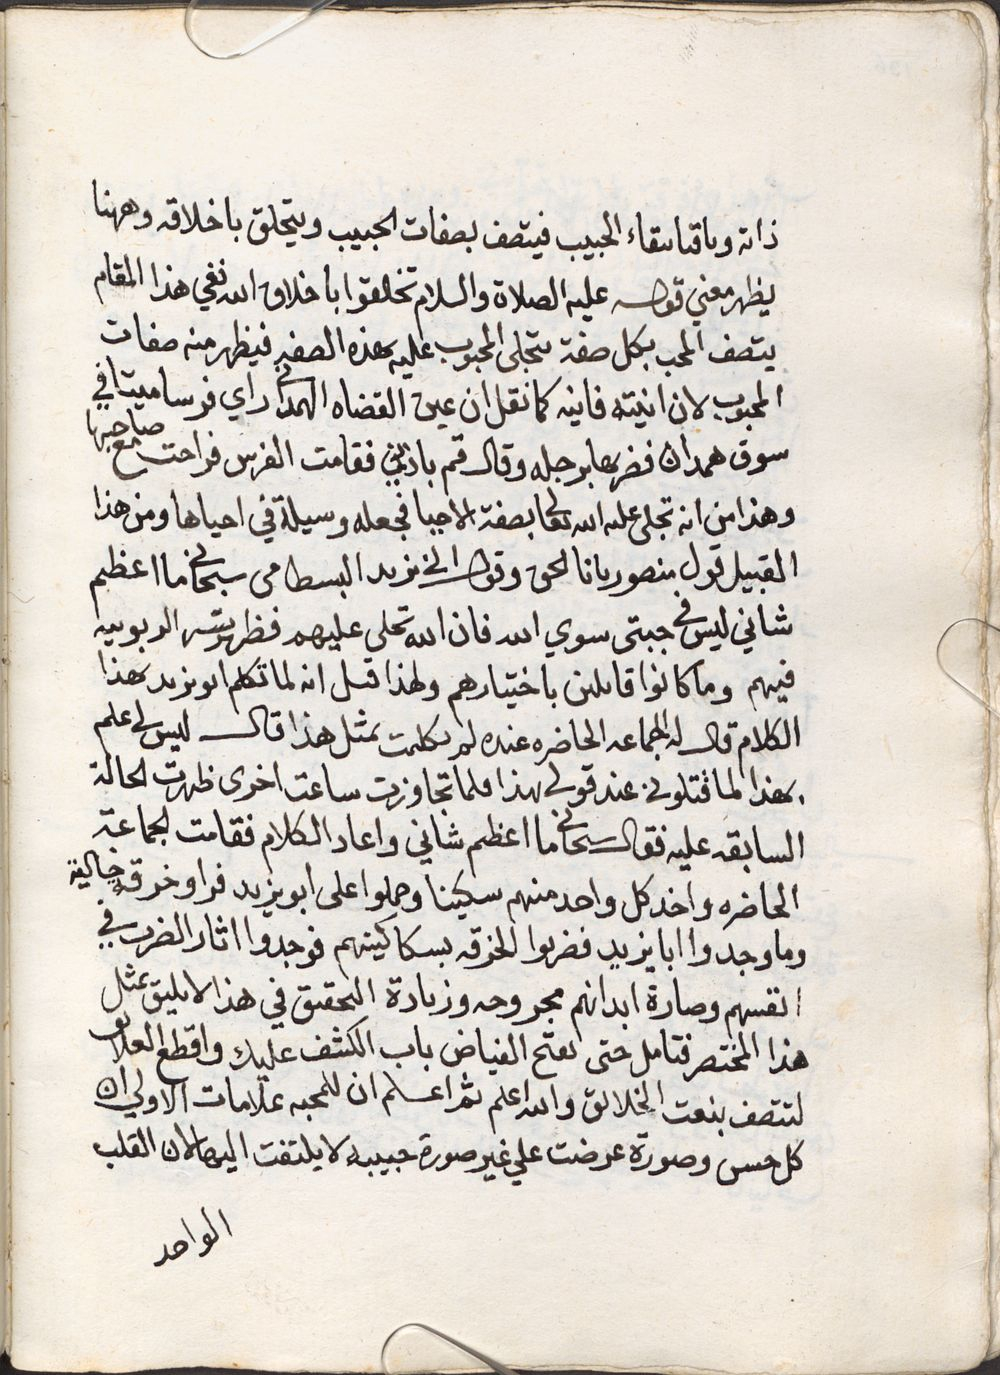 ذاته وباقيا ببقاء الحبيب فيتصف بصفات الحبيب ويتخلق باخلاقه وههنا
يظهر معني قوله عليه الصلاة والسلام تخلقوا باخلاق الله ففي هذا المقام
يتصف المحب بكل صفة يتجلى المحبوب عليه بهذه الصفه فيظهر منه صفات
المحبوب لان انيته فانيه كما نقل ان عين القضاه الهمداني راي فرسا ميتا في
سوق همدان فضربها برجله وقال قم باذني فقامت الفرس فراحت مع صاحبها
وهذا من انه تجلى عليه الله تعالى بصفة الاحيا فجعله وسيلة في احياها ومن هذا
القبيل قول منصور بانا الحق وقول ابي يزيد البسطامي سبحاني ما اعظم
شاني ليس في جبتي سوي الله فان الله تجلى عليهم فظهر سر الربوبيه
فيهم وما كانوا قايلين باختيارهم ولهذا قيل انه لما تكلم ابو يزيد بهذا
الكلام قال له الجماعه الحاضره عنده لم تكلمت بمثل هذا قال ليس لي علم
بهذا لما قتلوني عند قولي بهذا فلما تجاوزت ساعت اخرى ظهرت الحالة
السابقه عليه فقال سبحاني ما اعظم شاني واعاد الكلام فقامت الجماعة
الحاضره واخذ كل واحد منهم سكينا وحملوا على ابو يزيد فراو خرقه خالية
وما وجدوا ابا يزيد فضربوا الخرقه بسكاكينهم فوجدوا اثار الضرب في
انفسهم وصارة ابدانهم مجروحه وزيادة التحقيق في هذا لا يليق بمثل
هذا المختصر فتامل حتى يفتح الفياض باب الكشف عليك واقطع العلايق
لتتصف بنعت الخلائق والله اعلم ثم اعلم ان للمحبه علامات الاولي ان
كل حسن وصورة عرضت علي غير صورة حبيبه لا يلتفت اليها لان القلب
الواحد